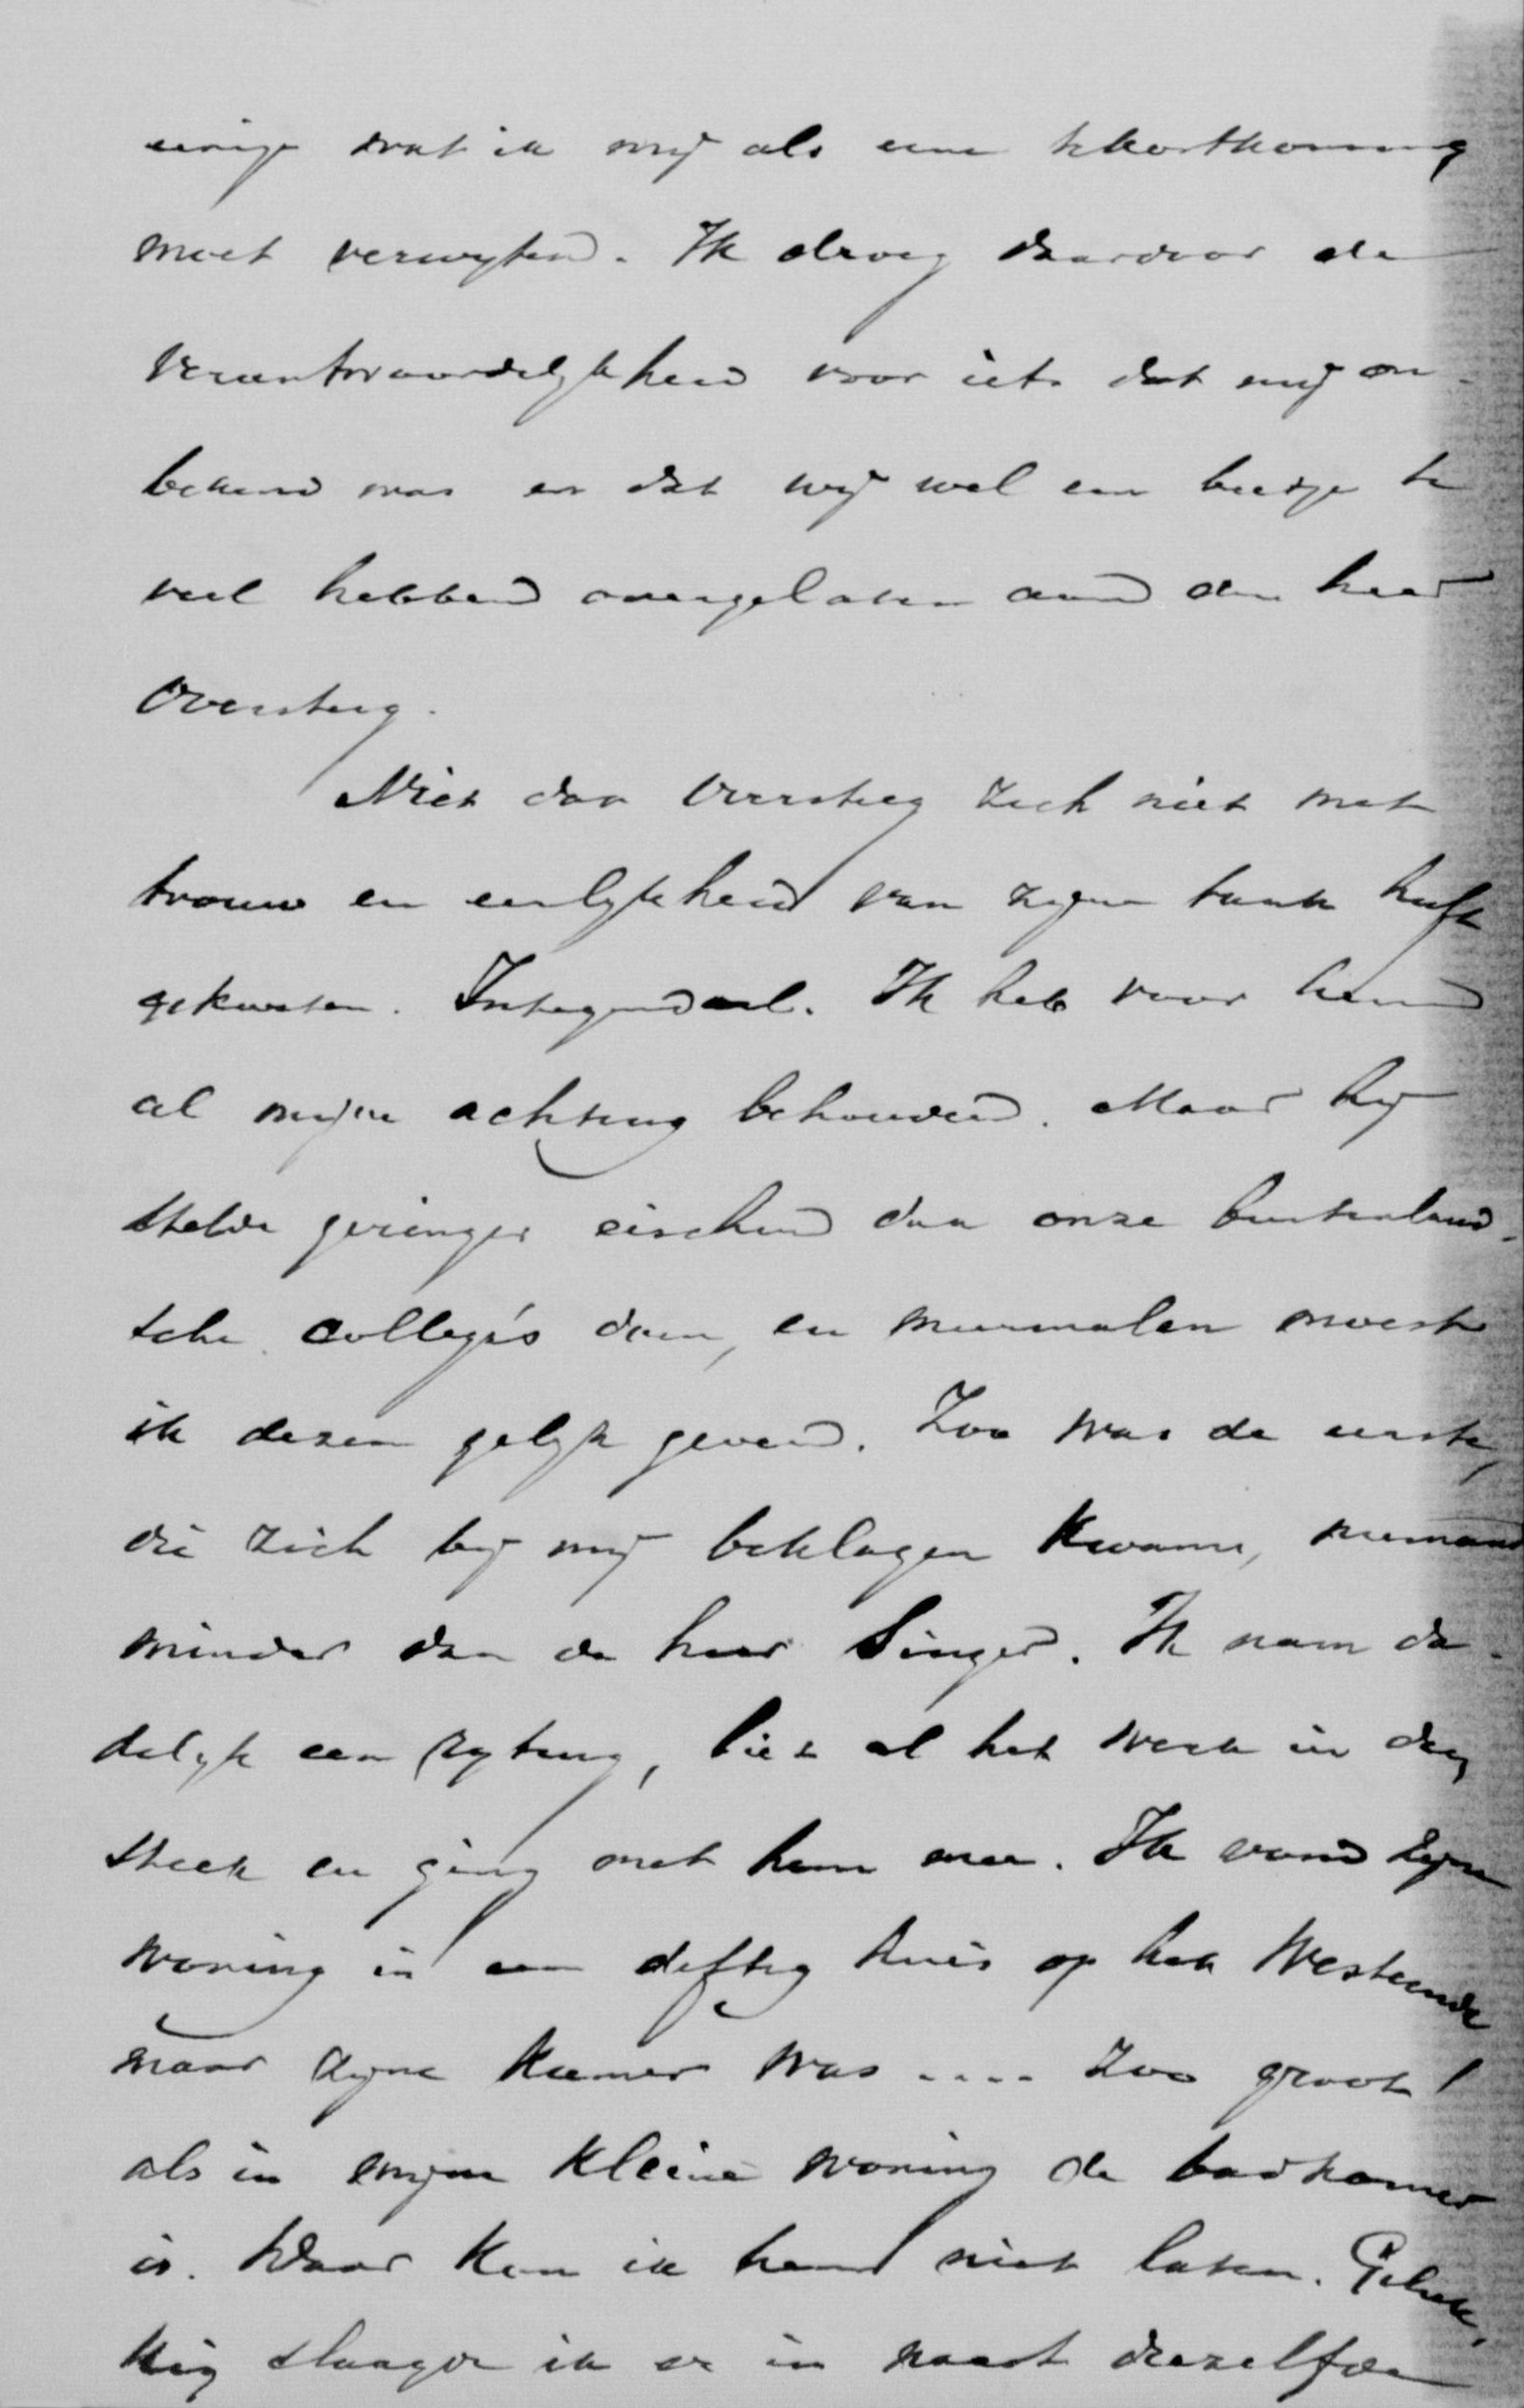 eenige wat ik mij als eene tekortkoming
moet verwijten. Ik droeg daardoor de
verantwoordelijkheid voor iets dat mij on-
bekend was en dat wij wel een beetje te
veel hebben overgelaten aan den heer
Oversteeg.
Niet dan Oversteeg zich niet met
trouw en eerlijkheid van zijne taak heeft
gekweten. Integendeel. Ik heb voor hem
al mijne achting behouden. Maar hij
stelde geringer eischen dan onze buitenland-
sche collega's doen, en meermalen moest
ik dezen gelijk geven. Zoo was de eerste,
die zich bij mij beklagen kwam, niemand
minder dan de heer Singer. Ik nam da-
delijk een rijtuig, liet al het werk in den
steek en ging met hem mee. Ik vond zijne
woning in een deftig huis op het Westeinde
maar zijne kamer was .... zoo groot
als in mijne kleine woning de badkamer
is. Daar kon ik hem niet laten. Geluk-
kig slaagde ik er in naast diezelfde